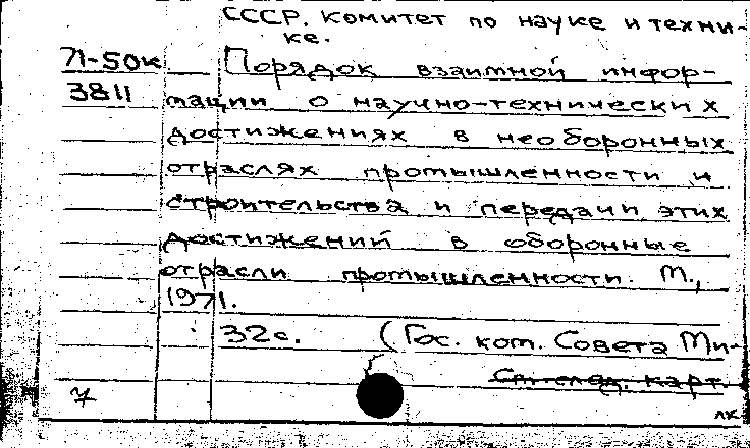 СССР. Комитет по науке и техни-
ке.
71-50к
Порядок взаимной инфор-
3811
мации о научно-технических
достижениях в необоронных
отраслях промышленности и
строительства и передачи этих
достижений в оборонные
отрасли промышленности. М.,
1971.
32с. (Гос. ком. Совета Ми-
См. след. карт.
7
лк